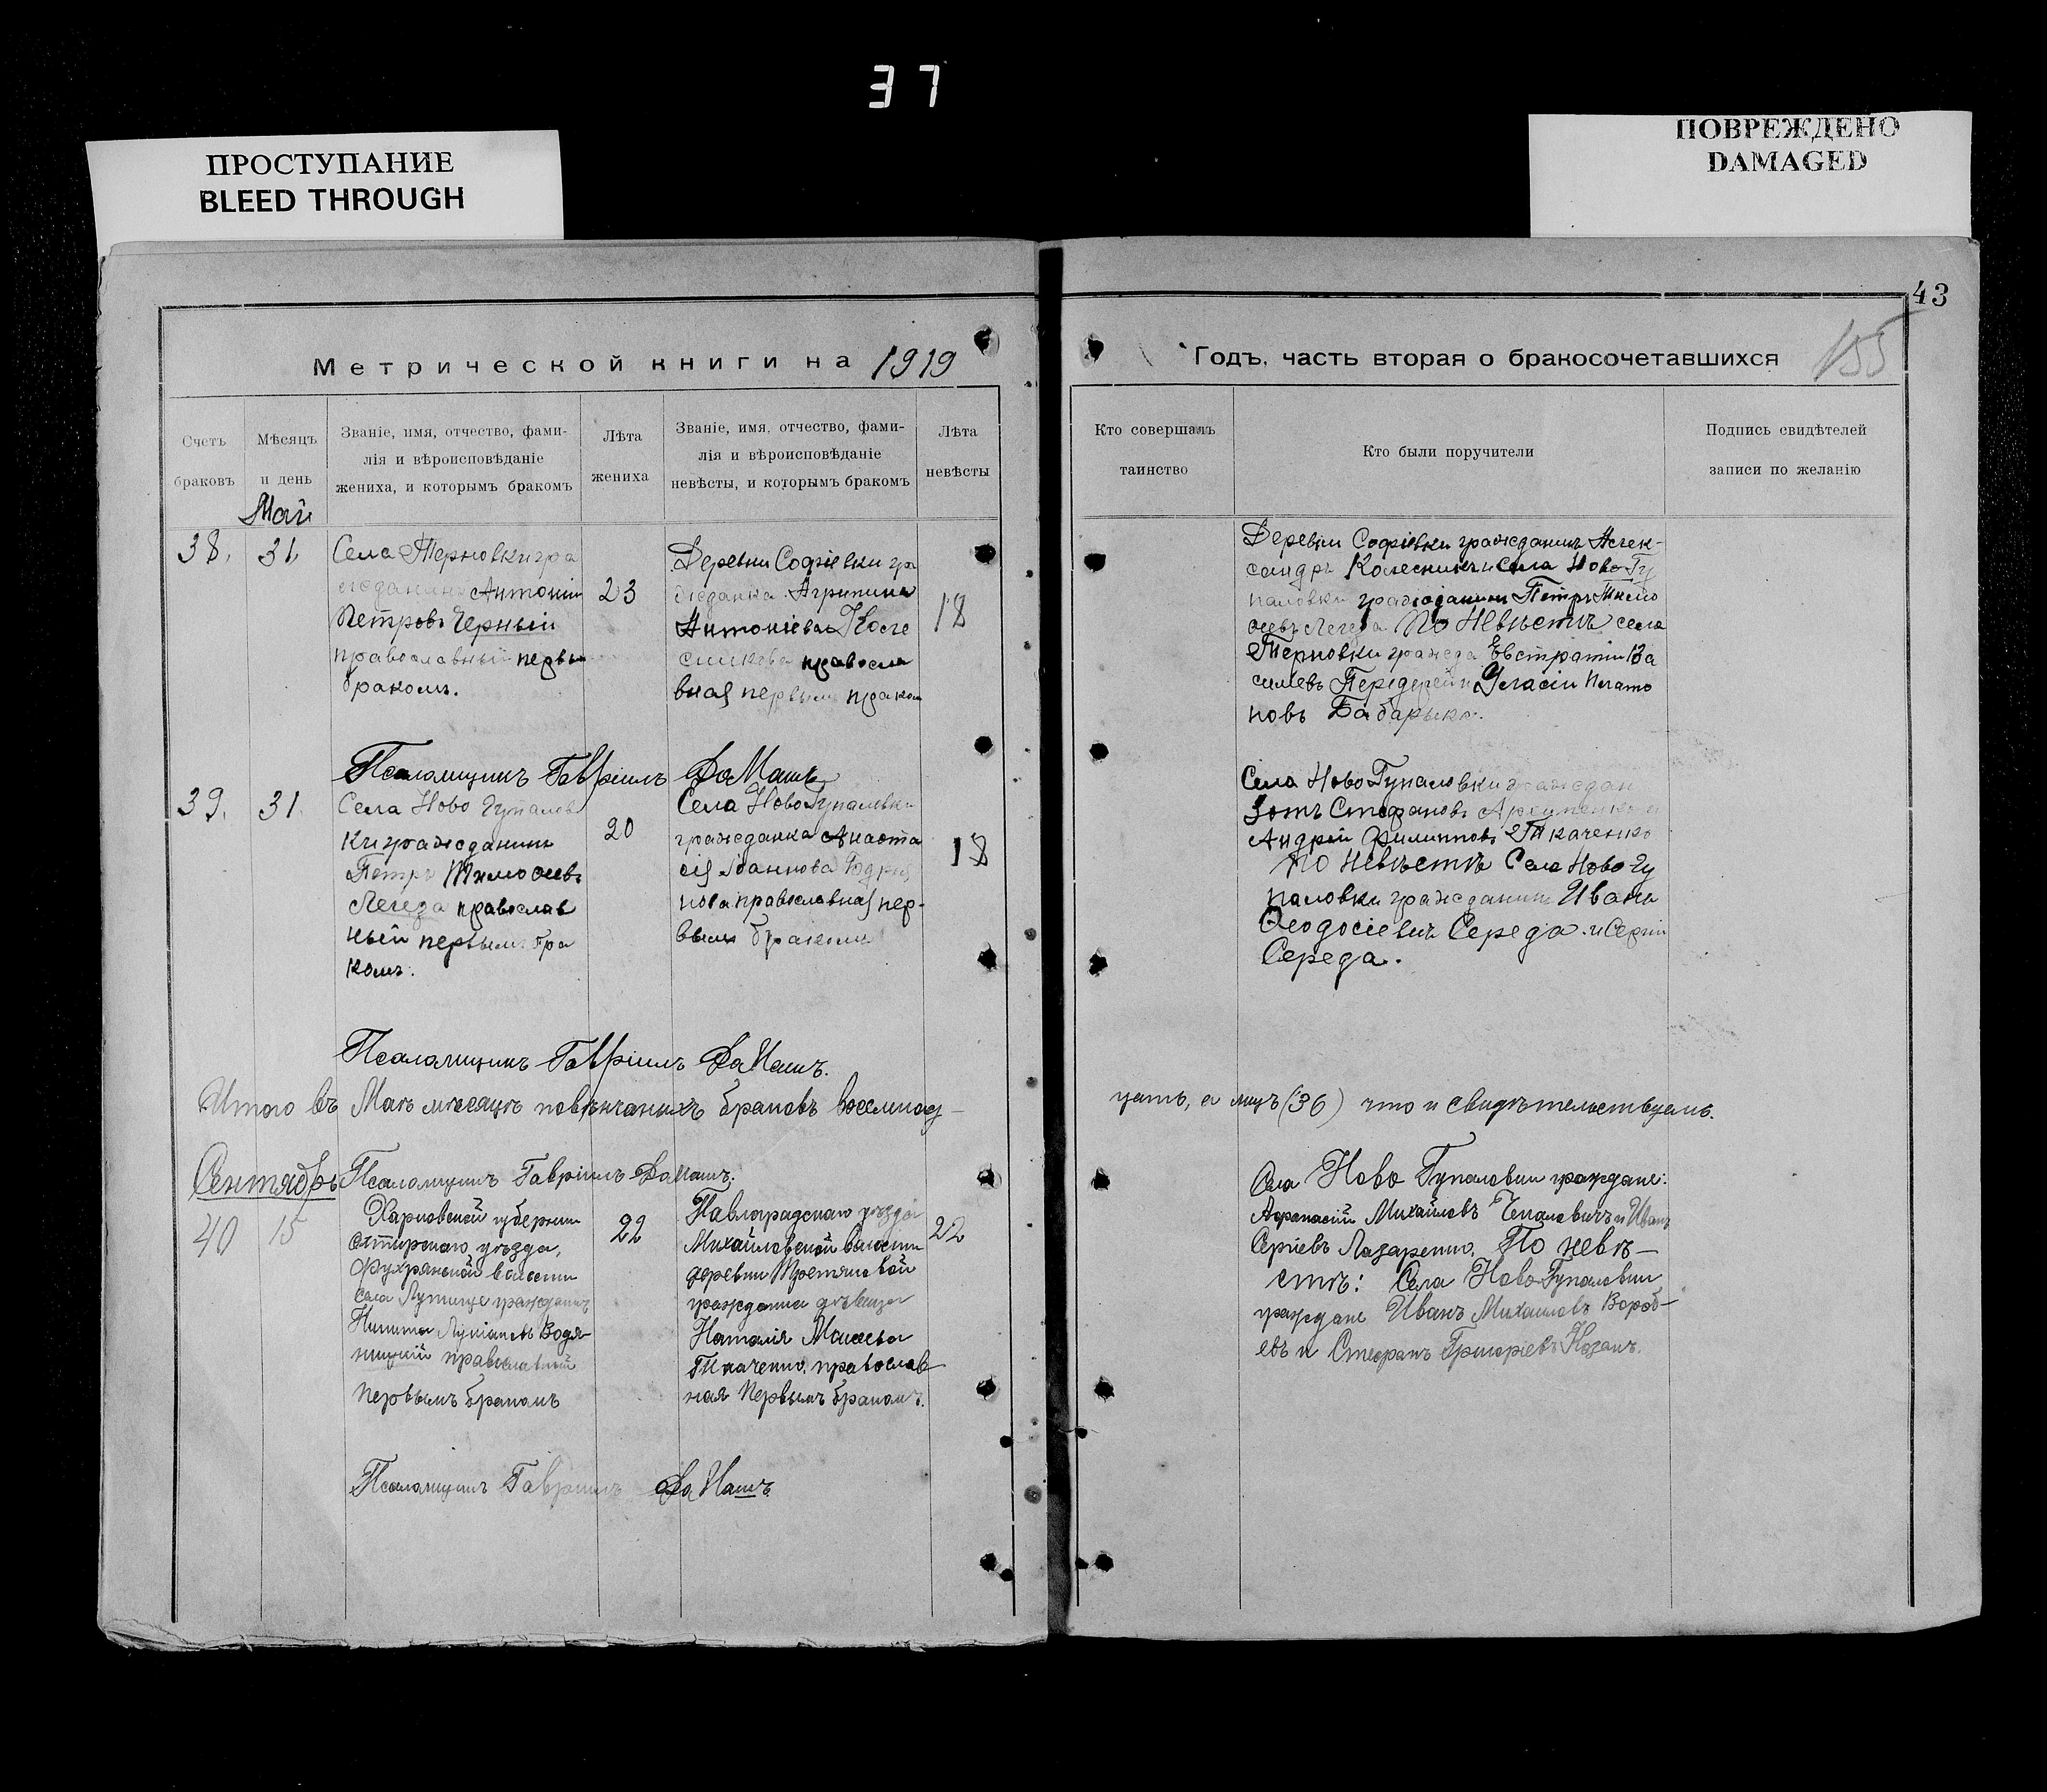 37
ПРОСТУПАНИЕ
BLEED THROUGH
ПОВРЕЖДЕНО
DAMAGED
43
155
Метрической книги на 1919
Годъ, часть вторая о бракосочетавшихся
Счетъ
браковъ
Мѣсяцъ
и день
Званіе, имя, отчество, фами-
лія и вѣроисповѣданіе
жениха, и которымъ бракомъ
Лѣта
жениха
Званіе, имя, отчество, фами-
лія и вѣроисповѣданіе
невѣсты, и которымъ бракомъ
Лѣта
невѣсты
Кто совершалъ
таинство
Кто были поручители
Подпись свидѣтелей
записи по желанію
Май
38.
31.
Села Терновки гра
жданинъ Антоній
Петровъ Черный
православный первы
бракомъ.
23
Деревни Софіевки гра
жданка Агрипина
Антоніева
православ
ная первымъ бракомъ
18
Деревни Софіевки гражданинъ Алек-
сандръ Колесникъ и Села Ново Гу
паловки гражданинъ Петръ Тимо
ѳеевъ Легеза По Невѣстѣ села
Терновки гражда Евстратій Ва
силевъ Передерей и
новъ Бабарыка.
Псаломщикъ Гавріилъ
39.
31.
Села Ново Гупалов
ки гражданинъ
Петръ Тимоѳеевъ
Легеза православ
ный первымъ бра
комъ.
20
Села Ново Гупаловки
гражданка Анаста
сія Іоаннова
православная пер-
вымъ бракомъ
18
Села Ново Гупаловки граждан
Зотъ Стефановъ
Андрей Филипповъ Ткаченко
По Невѣстѣ Села Ново Гу
паловки гражданинъ Иванъ
Ѳеодосіевичъ Середа и Сергій
Середа.
Псаломщикъ Гавріилъ
Итого въ Маѣ мѣсяцѣ повѣнчанныхъ браковъ восемнад-
цать, а лицъ (36) что и свидѣтельствуемъ.
Псаломщикъ Гавріилъ
Сентябрь
40
15
Харковской губерніи
уѣзда,
волости
села гражданинъ
Никита Лукіановъ Водя-
ницкій православный
Первымъ бракомъ
22
Павлоградскаго уѣзда
Михайловской волости
деревни
гражданка дѣвица
Наталія
Ткаченко, православ
ная Первымъ бракомъ.
22
Села Ново Гупаловки граждане:
Афанасій Михайловъ и Иванъ
Сергіевъ Лазаренко. По невѣ-
стѣ: Села Ново Гупаловки
граждане Иванъ Михаиловъ Вороб-
евъ и Стефанъ Григоріевъ Козакъ.
Псаломщикъ Гавріилъ